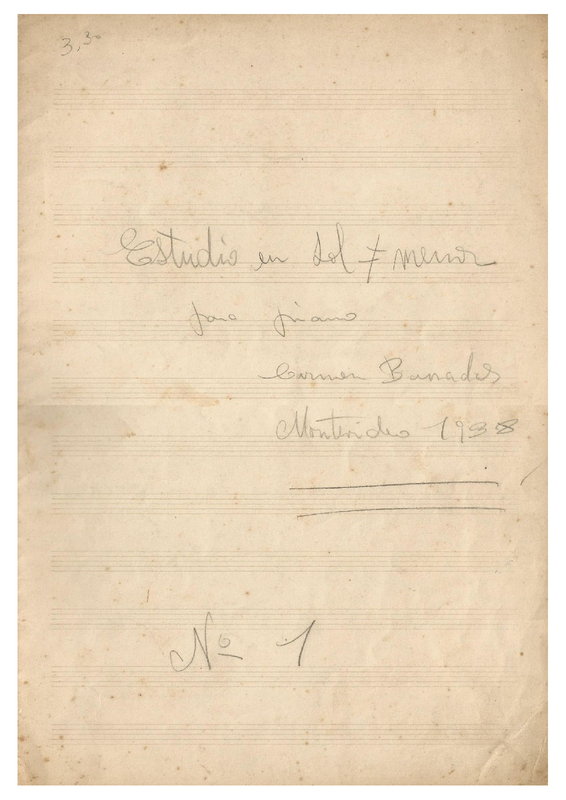 3,30
Estudio en Sol ♯ menor
para piano
Carmen Barradas
Montevideo 1938
Nº 1